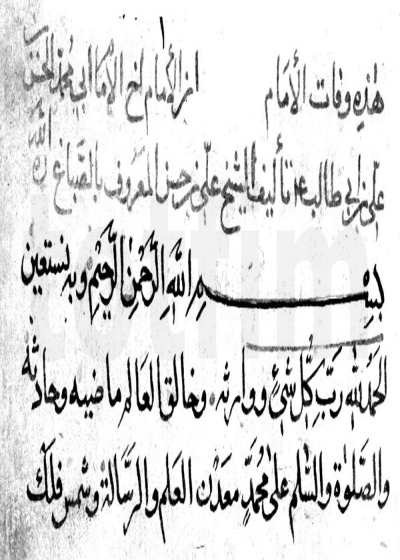 هذه وفات الأمام ابن الإمام اخ الإمام ابي محمد الحسن
علي بن ابي طالب ع تأليف الشيخ علي بن حسن المعروف بالصباغ ره
بسم الله الرحمن الرحيم وبه نستعين
الحمد لله رب كل شئ ووارثه وخالق العالم ماضيه وحادثه
والصلوة والسلم على محمد معدن العلم والرسالة وشمس فلك